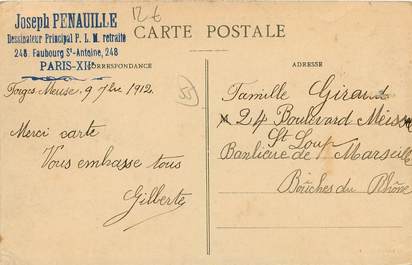 Joseph PENAUILLE
Dessinateur Principal P. L. M. retraité
248, Faubourg St-Antoine, 248
PARIS-XIIe
12 €
CARTE POSTALE
CORRESPONDANCE
ADRESSE
55
Forges Meuse, 9 7bre 1912
Merci carte
Vous embrasse tous
Gilberte
Famille Giraud
24 Boulevard
St Loup
Banlieue de Marseille
Bouches du Rhône